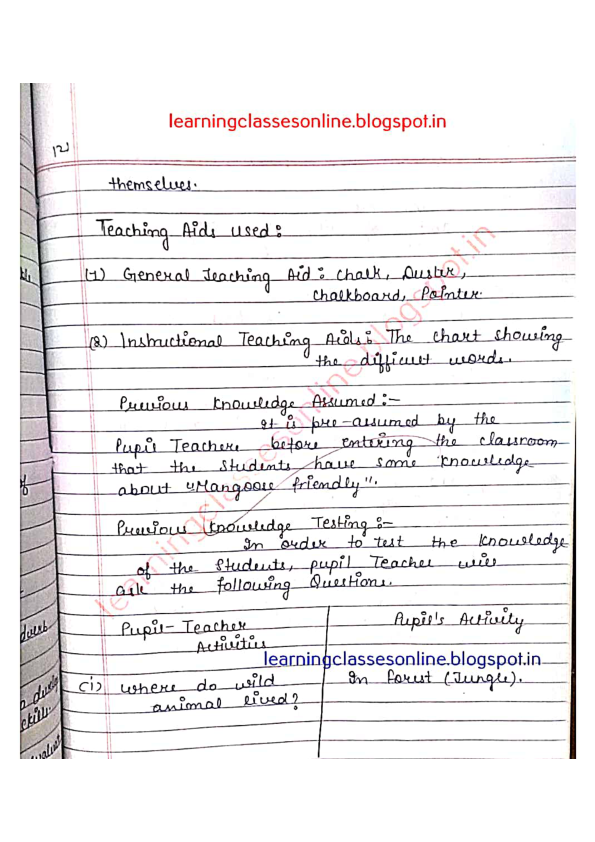 learningclassesonline.blogspot.in
12
themselves.
Teaching Aids used:
(1) General Teaching Aid: Chalk, Duster,
Chalkboard, Pointer.
(2) Instructional Teaching Aids: The chart showing
the difficult words.
Previous Knowledge Assumed:-
It is pre-assumed by the
Pupil Teachere before entering the classroom
that the students have some knowledge
about "Mangoose friendly".
Previous Knowledge Testing:-
In order to test the knowledge
of the students, pupil Teacher will
ask the following Questions.
Pupil-Teacher Activities
Pupil's Activity
learningclassesonline.blogspot.in
(i) Where do wild animal lived?
In forest (Jungle).
learningclassesonline.blogspot.in